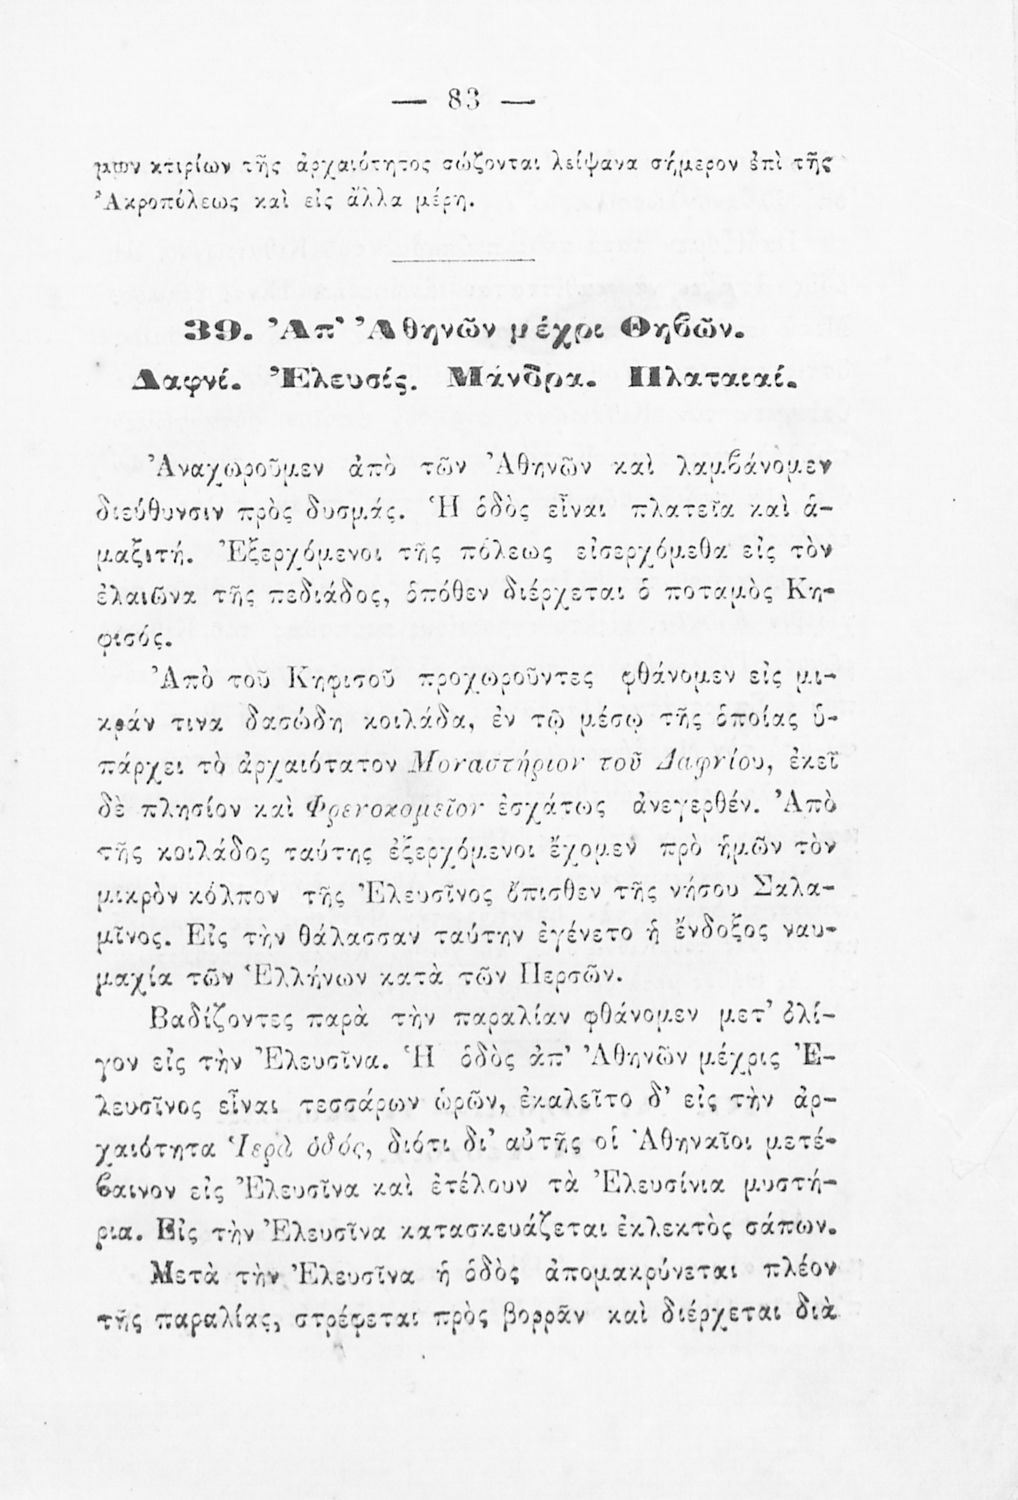 — 83 —
μων κτιρίων τῆς ἀρχαιότητος σώζονται λείψανα σήμερον ἐπὶ τῆς
Ἀκροπόλεως καὶ εἰς ἄλλα μέρη.
39. Ἀπ' Ἀθηνῶν μέχρι Θηβῶν.
Δαφνί. Ἐλευσίς. Μάνδρα. Πλαταιαί.
Ἀναχωροῦμεν ἀπὸ τῶν Ἀθηνῶν καὶ λαμβάνομεν
διεύθυνσιν πρὸς δυσμάς. Ἡ ὁδὸς εἶναι πλατεῖα καὶ ἁ-
μαξιτή. Ἐξερχόμενοι τῆς πόλεως εἰσερχόμεθα εἰς τὸν
ἐλαιῶνα τῆς πεδιάδος, ὁπόθεν διέρχεται ὁ ποταμὸς Κη-
φισός.
Ἀπὸ τοῦ Κηφισοῦ προχωροῦντες φθάνομεν εἰς μι-
κράν τινα δασώδη κοιλάδα, ἐν τῷ μέσῳ τῆς ὁποίας ὑ-
πάρχει τὸ ἀρχαιότατον Μοναστήριον τοῦ Δαφνίου, ἐκεῖ
δὲ πλησίον καὶ Φρενοκομεῖον ἐσχάτως ἀνεγερθέν. Ἀπὸ
τῆς κοιλάδος ταύτης ἐξερχόμενοι ἔχομεν πρὸ ἡμῶν τὸν
μικρὸν κόλπον τῆς Ἐλευσῖνος ὄπισθεν τῆς νήσου Σαλα-
μῖνος. Εἰς τὴν θάλασσαν ταύτην ἐγένετο ἡ ἔνδοξος ναυ-
μαχία τῶν Ἑλλήνων κατὰ τῶν Περσῶν.
Βαδίζοντες παρὰ τὴν παραλίαν φθάνομεν μετ' ὀλί-
γον εἰς τὴν Ἐλευσῖνα. Ἡ ὁδὸς ἀπ' Ἀθηνῶν μέχρις Ἐ-
λευσῖνος εἶναι τεσσάρων ὡρῶν, ἐκαλεῖτο δ' εἰς τὴν ἀρ-
χαιότητα Ἱερὰ ὁδός, διότι δι' αὐτῆς οἱ Ἀθηναῖοι μετέ-
βαινον εἰς Ἐλευσῖνα καὶ ἐτέλουν τὰ Ἐλευσίνια μυστή-
ρια. Εἰς τὴν Ἐλευσῖνα κατασκευάζεται ἐκλεκτὸς σάπων.
Μετὰ τὴν Ἐλευσῖνα ἡ ὁδὸς ἀπομακρύνεται πλέον
τῆς παραλίας, στρέφεται πρὸς βορρᾶν καὶ διέρχεται διὰ